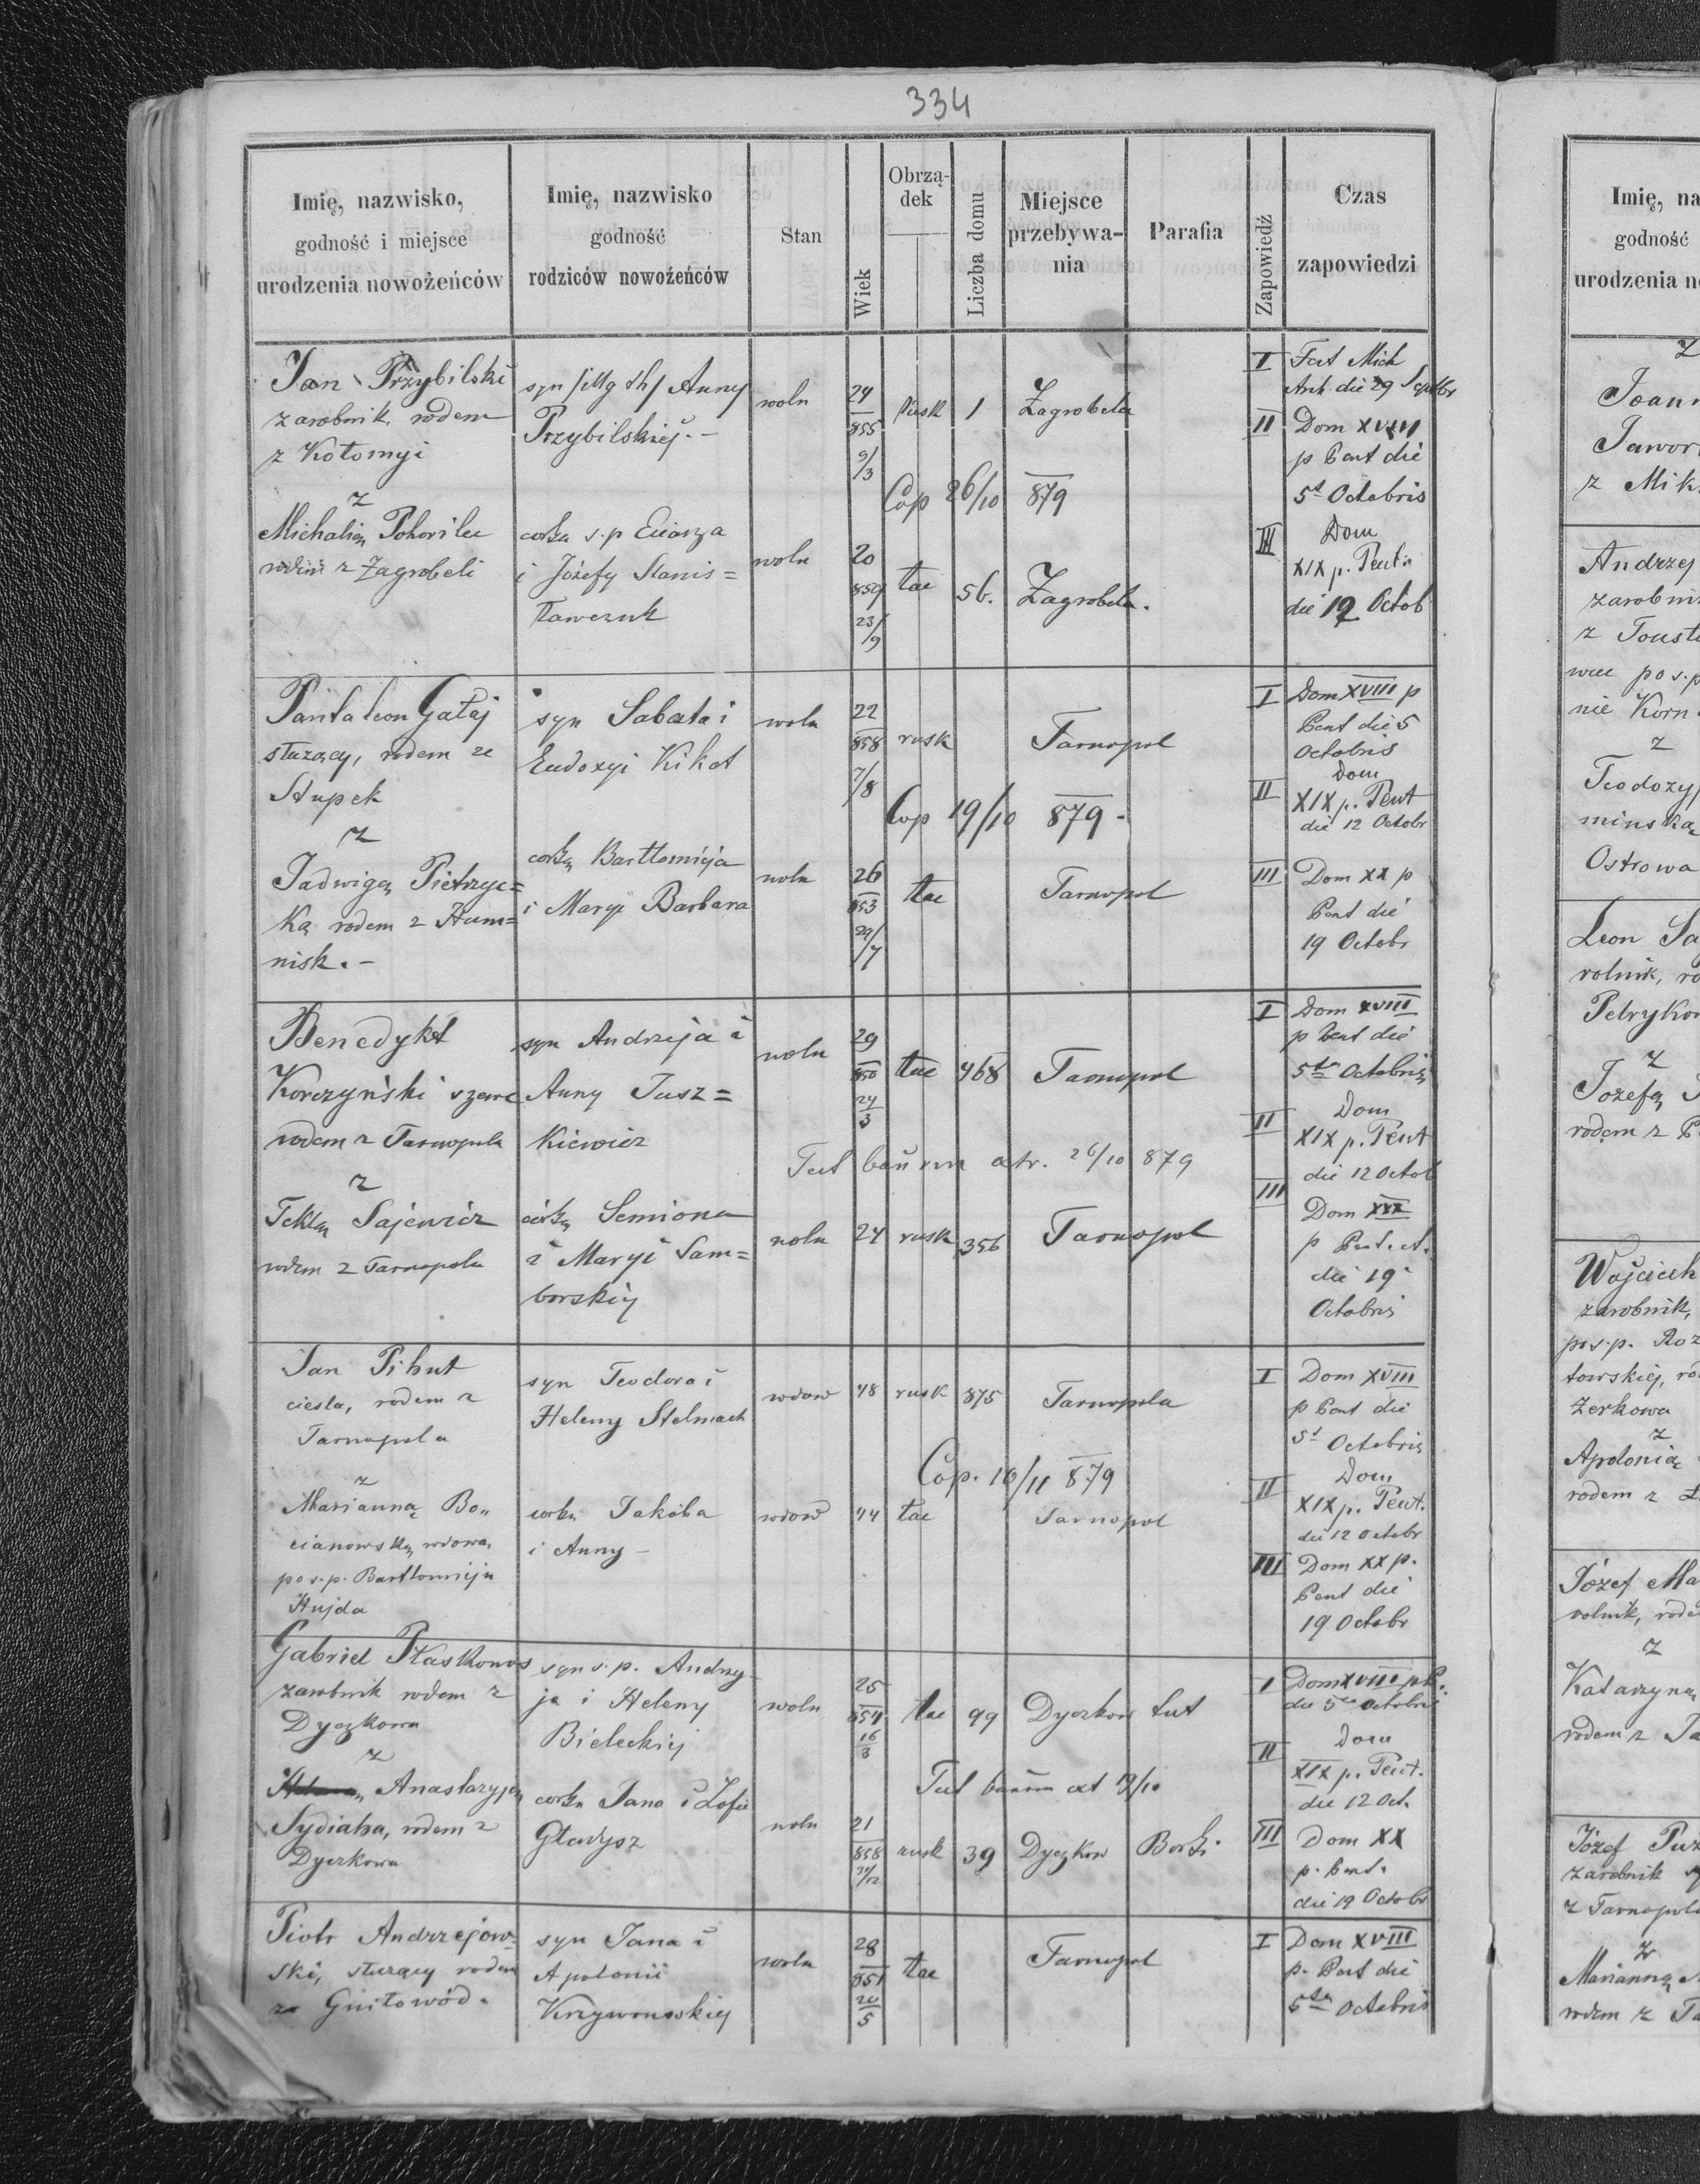 334
Imię, nazwisko,
godność i miejsce
urodzenia nowożeńców
Imię, nazwisko
godność
rodziców nowożeńców
Stan
Wiek
Obrzą-
dek
Liczba domu
Miejsce
przebywa-
nia
Parafia
Zapowiedź
Czas
zapowiedzi
Jan Przybilski
zarobnik, rodem
z Kołomyi
z
Michaliną Pohorilec
rodem z Zagrobeli
syn Anny
Przybilskiej.-
córka s.p
i Józefy Stanis=
ławczuk
woln
24
855
9/3
rusk
1
Zagrobela
Cop 26/10 879
woln
20
859
23/9
łac
56.
Zagrobela.
I Fest Mich
Arch die 29 Septbr
II Dom XVIII
p Pent die
5t Octobris
III Dom
XIX p. Pent
die 12 Octob
Pantaleon Gałaj
służący, rodem ze
Słupek
z
Jadwigą Pietrzyc=
ką rodem z Hum=
nisk.-
syn Sabata i
Eudoxyi Kikot
córką Bartłomieja
i Maryi Barbara
woln
22
858
7/8
rusk
Tarnopol
Cop 19/10 879-
woln
26
853
29/7
łac
Tarnopol
I Dom XVIII p
Pent die 5
Octobris
II Dom
XIX p. Pent
die 12 Octobr
III Dom XX p
Pent die
19 Octobr
Benedykt
Korczyński szewc
rodem z Tarnopola
z
Teklą Sajewicz
rodem z Tarnopola
syn Andrzeja i
Anny Jusz=
kiewicz
córką Semiona
i Maryi Sam=
borskiej
woln
29
850
24
3
łac
468
Tarnopol
Test atr. 26/10 879
woln
24
rusk
356
Tarnopol
I Dom XVIII
p Pent die
5ta Octobris
II Dom
XIX p. Pent
die 12 Octob
III
Dom XX
p Pentect.
die 19
Octobris
Jan Pihut
ciesla, rodem z
Tarnopola
z
Marianną Bo„
cianowską, wdową
po s.p. Bartłomieju
Hujda
syn Teodora i
Heleny Stelmach
corka Jakóba
i Anny -
wdow
48
rusk
875
Tarnopola
Cop. 10/11 879
wdow
44
łac
Tarnopol
I Dom XVIII
p Pent die
5t Octobris
II Dom
XIX p. Pent.
die 12 Octobr
III Dom XX p.
Pent die
19 Octobr
Gabriel Płaskonos
zarobnik rodem z
Dyczkowa
z
Anastazyją
Sydiaha, rodem z
Dyczkowa
syn s.p. Andrze-
ja i Heleny
Bieleckiej
corka Jana i Zofii
Gładysz
woln
25
854
16
3
łac
99
Dyczkow
tut
Test
woln
21
858
rusk
39
Dyczkow
Borki
I Dom XVIII p P.
die 5ta Octobris
II Dom
XIX p. Pent.
die 12 Oct.
III Dom XX
p. Pent.
die 19 Octobr
Piotr Andrzejow-
ski, służący rodem
z Gniłowód.
syn Jana i
Apolonii
Krzywonoskiej
woln
28
851
20
5
łac
Tarnopol
I Dom XVIII
p. Pent die
5ta Octobris
Imię, na
godność
urodzenia n
z
Joann
Jawor
z Mik
Andrzej
zarobni
z Toust
wiec po s.p
nie Korn
z
Teodozy
mińską
Ostrowa
Leon Sa
rolnik, ro
Petryko
z
Jozefą
rodem z
Wojciech
zarobnik,
po s.p. Roz
towskiej, ro
Zerkowa
z
Apolonią
rodem z
Józef Ma
rolnik, rode
z
Katarzyną
rodem z Ta
Józef Puz
zarobnik
z Tarnopol
z
Marianną
rodem z Ta